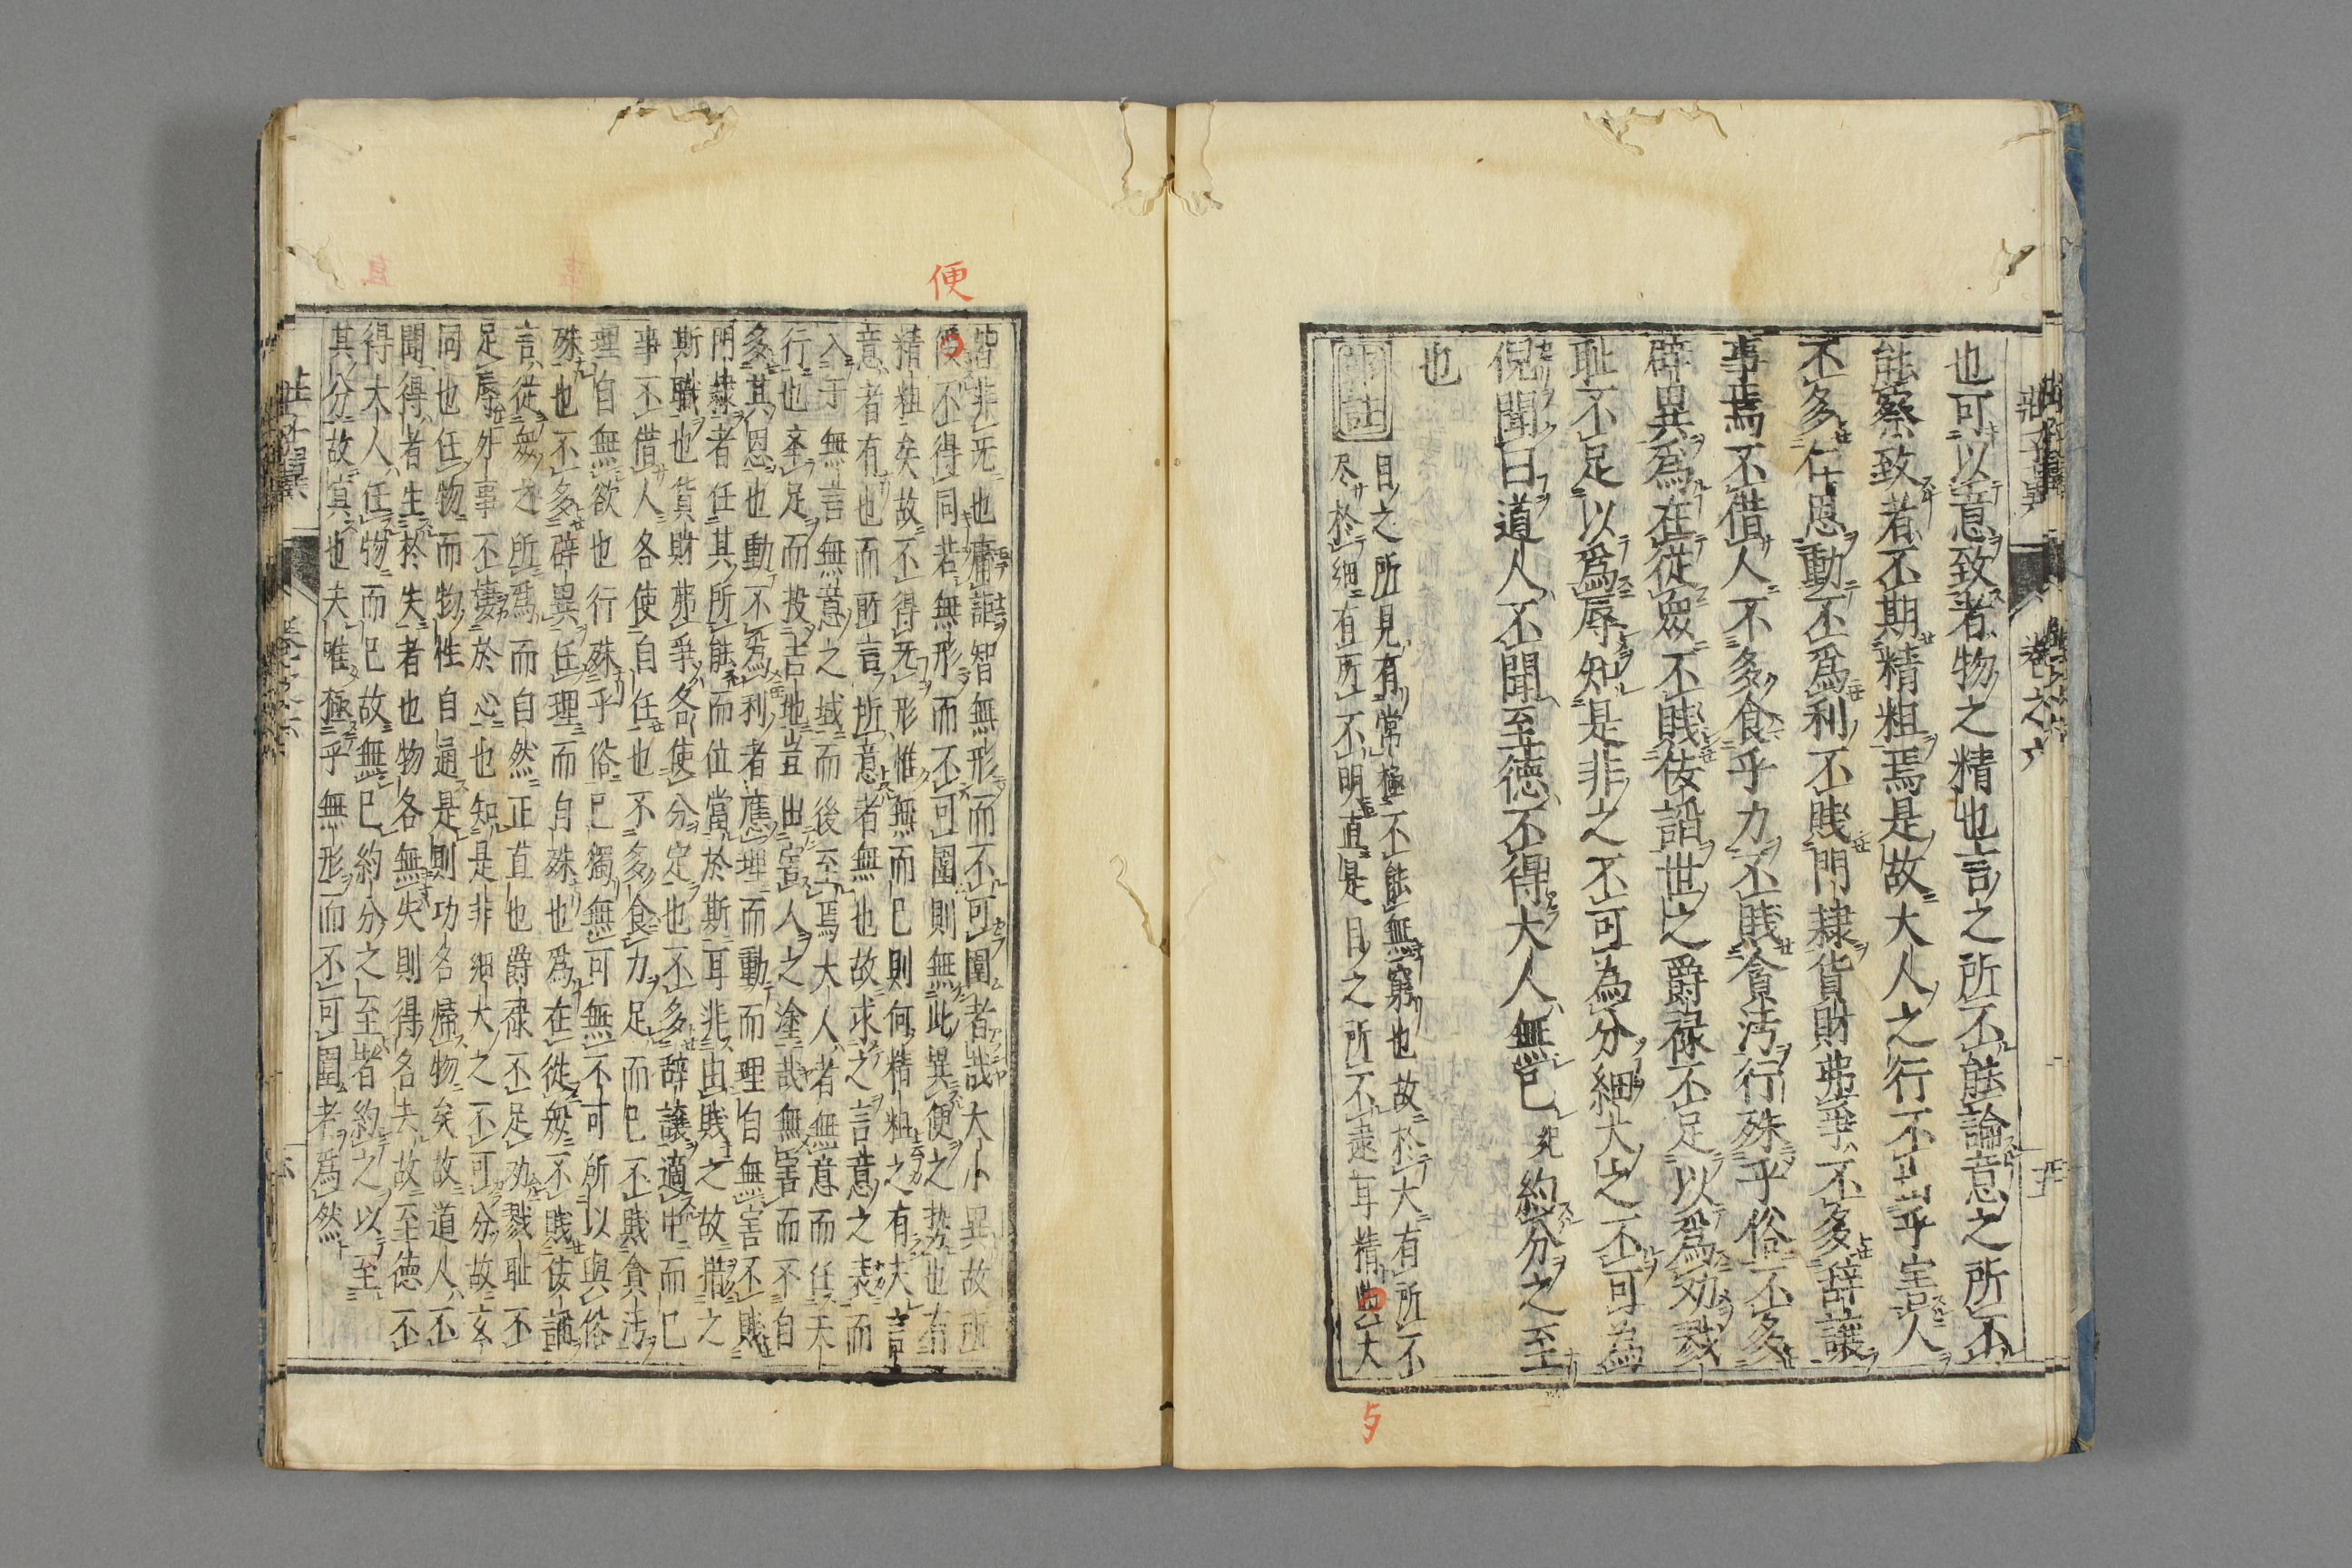 也可以意致者物之精也言之所不能論意之所不
能察致者不期精粗焉是故大人之行不出乎害人
不多仁恩動不爲利不賤門隸貨財弗爭不多辭讓
事焉不借人不多食乎力不賤貪汚行殊乎俗不多
辟異爲在從衆不賤佞謟世之爵祿不足以爲劝戮
耻不足以爲辱知是非之不可為分細大之不可為
倪聞曰道人不聞至德不得大人無已 約分之至
也
目之所見有常極不能無窮也故於大有所不
尽於細有所不明直是目之所不逮耳精與大
与
便
皆非无也庸詎智無形而不可圍者哉大小異故所
便不得同若無形而不可圍則無此異便之势也有
精粗矣故不得无形惟無而已則何精粗之有夫言
意者有也而所言所意者無也故求之言意之表而
入于無言無意之域而後至焉大人者無意而任天
行也奎足而投吉地豈出害人之塗哉無害而不自
多其恩也動不為利者應理而動而理自無害不賤
門隸者任其所能而位當於斯耳非由賤之故措之
斯職也貨財弗爭各使分定也不多辞讓適中而已
事不借人各使自任也不多食力足而已不賤貪汚
理自無欲也行殊乎俗已獨無可無不可所以與俗
殊也不多辟異任理而自殊也爲在從衆不賤佞謟
言從衆之所爲而自然正直也爵祿不足劝戮耻不
足辱外事不悽於心也知是非細大之不可分故玄
同也任物而物性自通是則功名帰物矣故道人不
聞得者生於失者也物各無失則得名去故至德不
得大人任物而已故無已約分之至者約之以至
其分故冥也夫唯極乎無形而不可圍者爲然
莊子翼
卷之六